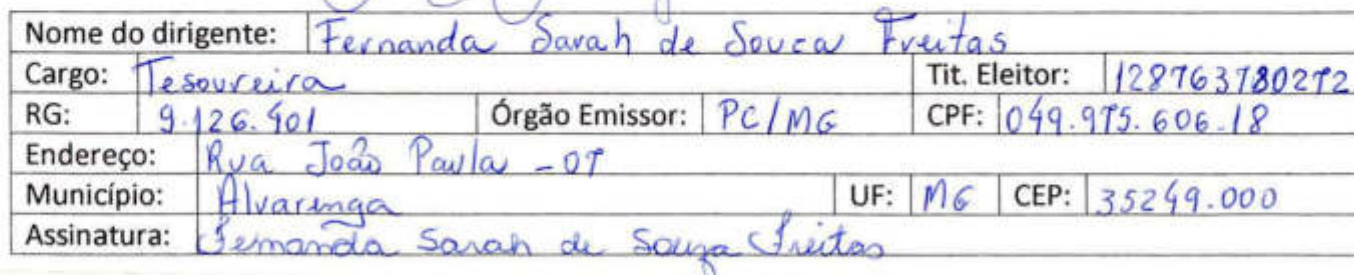 Nome do dirigente: Fernanda Sarah de Souza Freitas
Cargo: Tesoureira Tit. Eleitor: 128763780272
RG: 9.126.901 Órgão Emissor: PC/MG CPF: 049.975.606-18
Endereço: Rua João Paula - 07
Município: Alvarenga UF: MG CEP: 35249.000
Assinatura: Fernanda Sarah de Souza Freitas